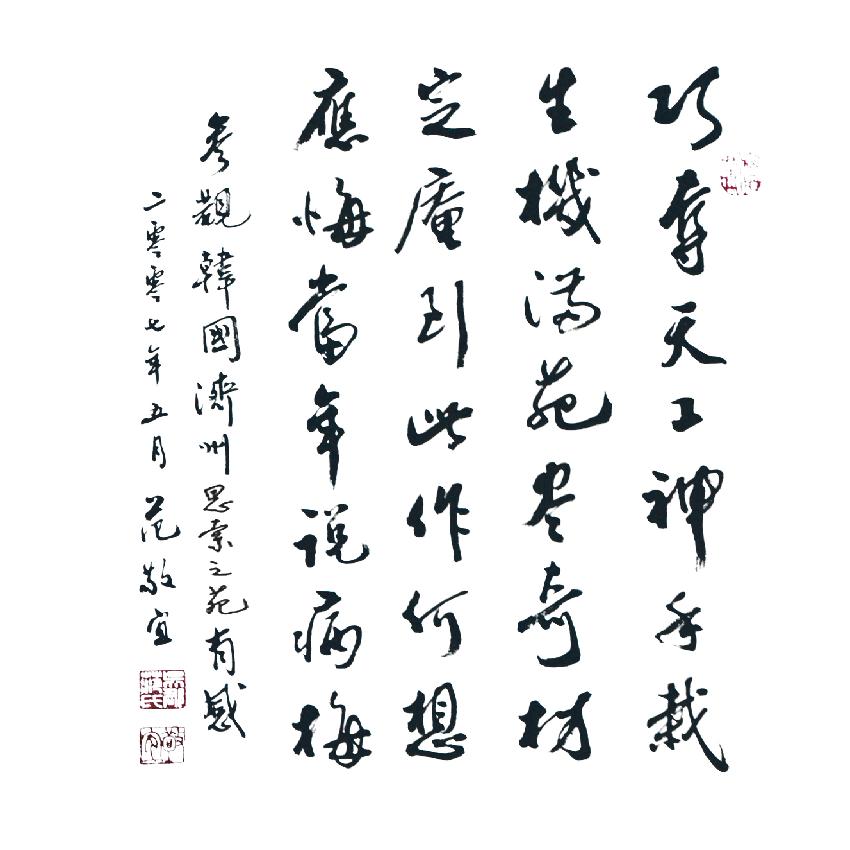 巧奪天工神手栽
生機满苑尽奇材
定庵到此作何想
應悔當年说病梅
參觀韓國濟州思索之苑有感
二零零七年五月范敬宜